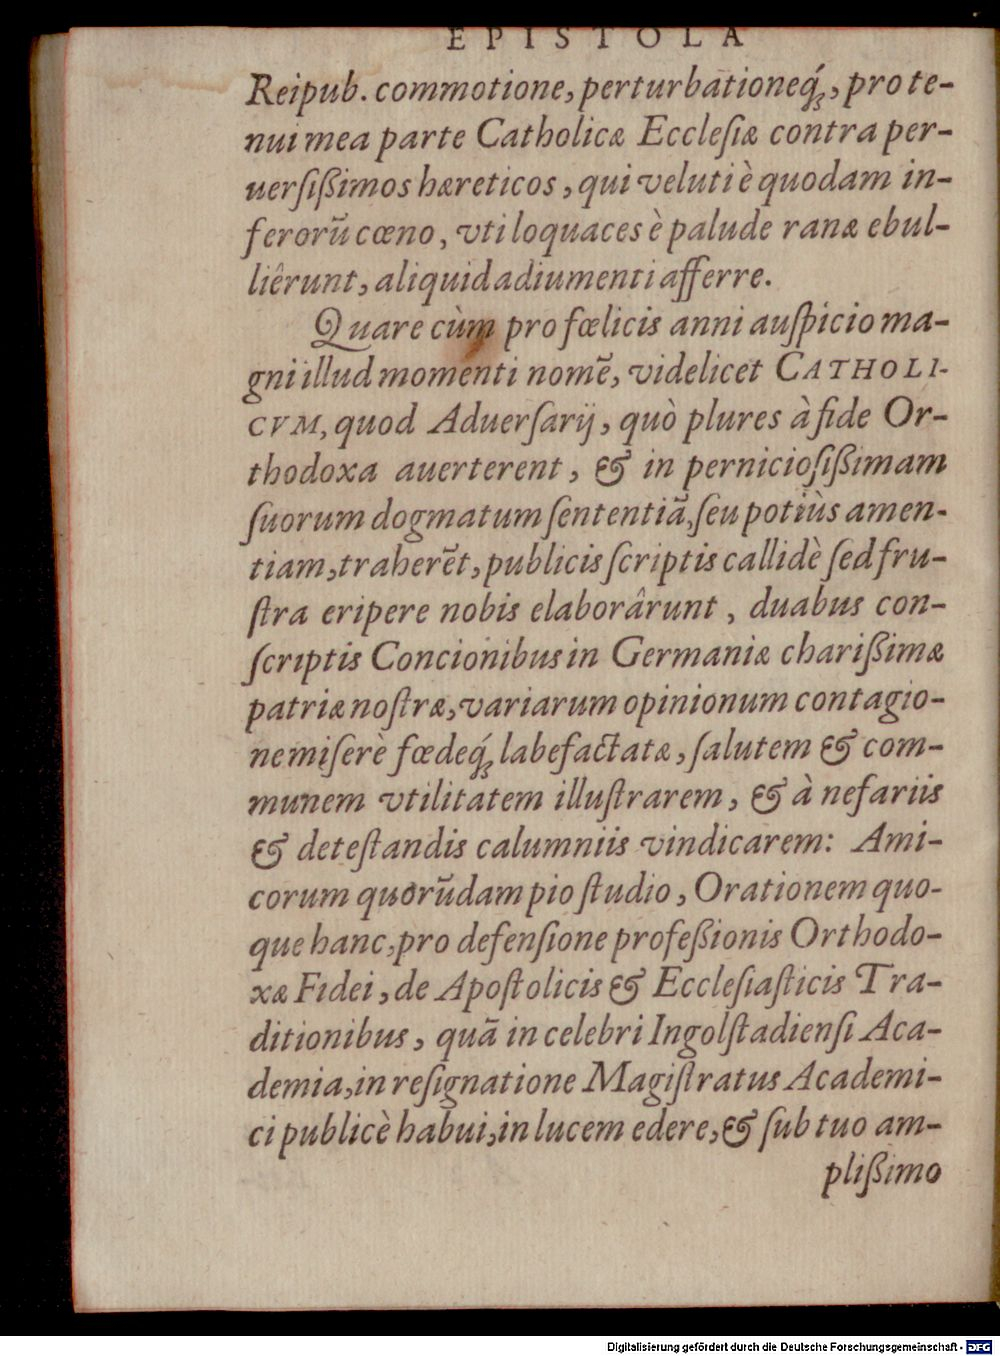 EPISTOLA
Reipub. commotione, perturbationeq́;, pro te-
nui mea parte Catholicæ Eccleſiæ contra per-
uerſißimos hæreticos, qui veluti è quodam in-
ferorũ cœno, vti loquaces è palude ranæ ebul-
liêrunt, aliquid adiumenti afferre.
Quare cùm pro fœlicis anni auſpicio ma-
gni illud momenti nomẽ, videlicet CATHOLI-
CVM, quod Aduerſarij, quò plures à fide Or-
thodoxa auerterent, & in pernicioſißimam
ſuorum dogmatum ſententiã, ſeu potiùs amen-
tiam, traherẽt, publicis ſcriptis callidè ſed fru-
ſtra eripere nobis elaborârunt, duabus con-
ſcriptis Concionibus in Germaniæ charißimæ
patriæ noſtræ, variarum opinionum contagio-
ne miſerè fœdeq́; labefactatæ, ſalutem & com-
munem vtilitatem illuſtrarem, & à nefariis
& deteſtandis calumniis vindicarem: Ami-
corum quorũdam pio ſtudio, Orationem quo-
que hanc, pro defenſione profeßionis Orthodo-
xæ Fidei, de Apoſtolicis & Eccleſiaſticis Tra-
ditionibus, quã in celebri Ingolſtadienſi Aca-
demia, in reſignatione Magiſtratus Academi-
ci publicè habui, in lucem edere, & ſub tuo am-
plißimo
Digitalisierung gefördert durch die Deutsche Forschungsgemeinschaft - DFG